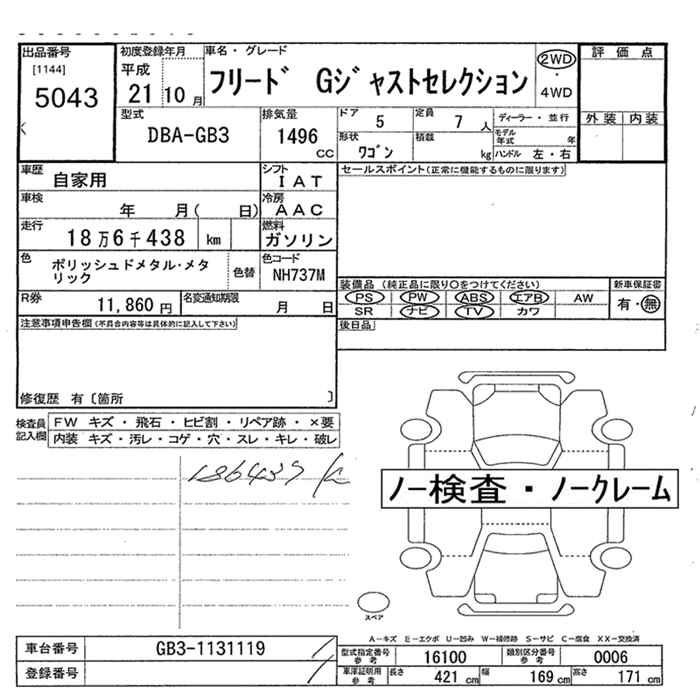 出品番号 初度登録年月 車名・グレード 評価点
[1144] 5043 平成 21 10月 フリード Gジャストセレクション 2WD・4WD
外装 内装
型式 DBA-GB3 排気量 1496 CC ドア 5 定員 7人 ディーラー・並行
形状 ワゴン 積載 kg モデル年式 年 ハンドル 左・右
車歴 自家用 シフト IAT セールスポイント(正常に機能するものに限ります)
車検 年 月( 日) 冷房 AAC
走行 18万6千438 km 燃料 ガソリン
色 ポリッシュドメタル・メタリック 色替 色コード NH737M
装備品 (純正品に限り○をつけてください) 新車保証書
PS PW ABS エアB AW 有・無
SR ナビ TV カワ
R券 11,860円 名変通知期限 月 日
後日品
注意事項申告欄(不具合内容等は具体的に記入して下さい)
修復歴 有〔箇所 〕
検査員記入欄 FW キズ・飛石・ヒビ割・リペア跡・×要
内装 キズ・汚レ・コゲ・穴・スレ・キレ・破レ
ノー検査・ノークレーム
スペア
A-キズ E-エクボ U-凹み W-補修跡 S-サビ C-腐食 XX-交換済
車台番号 GB3-1131119
登録番号
型式指定番号 参考 16100 類別区分番号 参考 0006
車庫証明用 参考 長さ 421 cm 幅 169 cm 高さ 171 cm